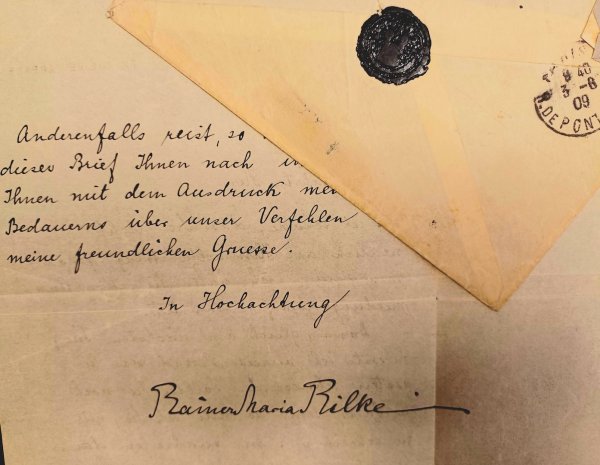 Anderenfalls reist, so
dieser Brief Ihnen nach
Ihnen mit dem Ausdruck
Bedauerns über unser Verfehlen
meine freundlichen Gruesse.
In Hochachtung
Rainer Maria Rilke
40
3 -8
09
DEPONT